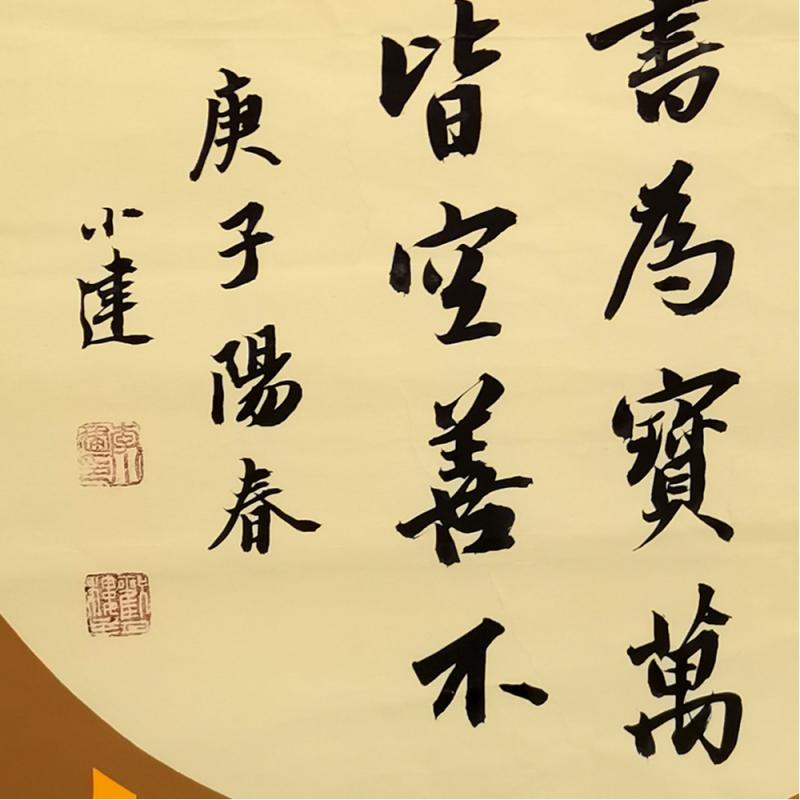 書為寶萬
皆空善不
庚子陽春
小建